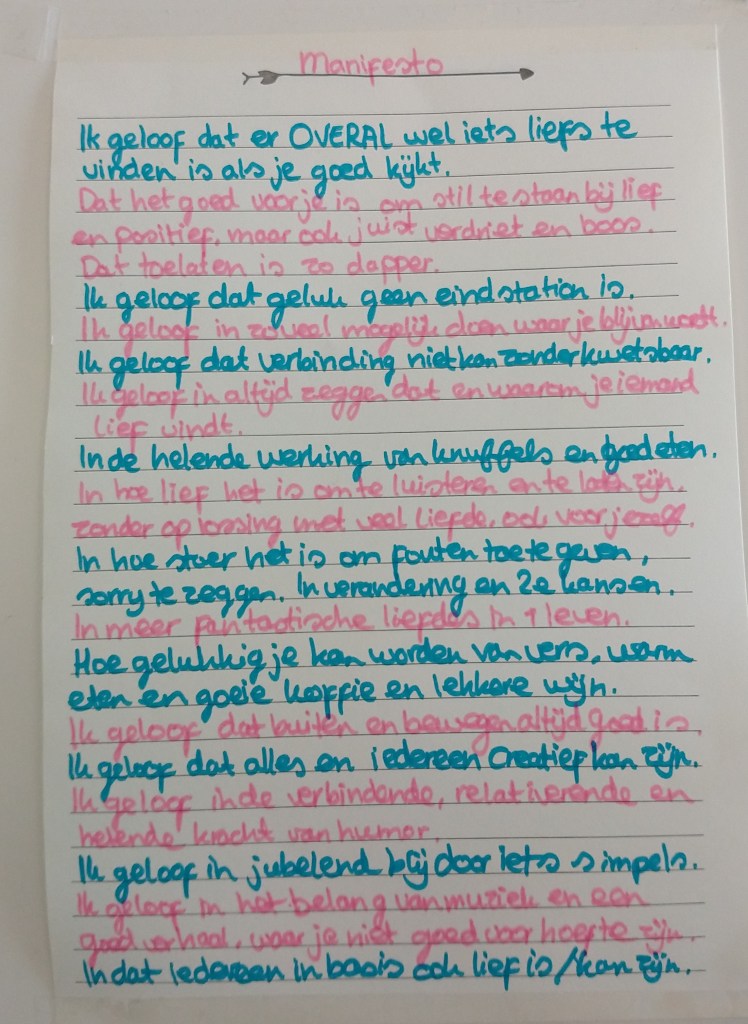 Manifesto
Ik geloof dat er OVERAL wel iets liefs te
vinden is als je goed kijkt.
Dat het goed voor je is om stil te staan bij lief
en positief, maar ook juist verdriet en boos.
Dat toelaten is zo dapper.
Ik geloof dat geluk geen eindstation is.
Ik geloof in zoveel mogelijk doen waar je blij van wordt.
Ik geloof dat verbinding niet kan zonder kwetsbaar.
Ik geloof in altijd zeggen dat en waarom je iemand
lief vindt.
In de helende werking van knuffels en goed eten.
In hoe lief het is om te luisteren en te laten zijn,
zonder oplossing met veel liefde, ook voor jezelf.
In hoe stoer het is om fouten toe te geven,
sorry te zeggen. In verandering en 2e kansen.
In meer fantastische liefdes in 1 leven.
Hoe gelukkig je kan worden van vers, warm
eten en goeie koffie en lekkere wijn.
Ik geloof dat buiten en bewegen altijd goed is.
Ik geloof dat alles en iedereen creatief kan zijn.
Ik geloof in de verbindende, relativerende en
helende kracht van humor.
Ik geloof in jubelend blij door iets simpels.
Ik geloof in het belang van muziek en een
goed verhaal, waar je niet goed voor hoeft te zijn.
In dat iedereen in basis ook lief is / kan zijn.